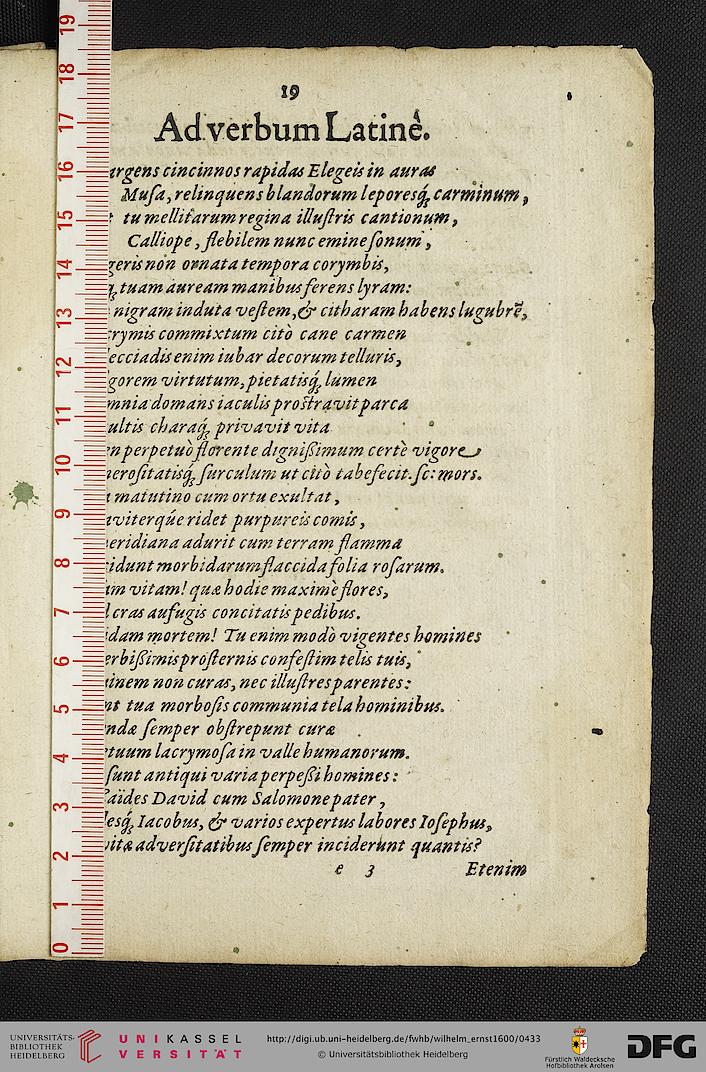 19
Ad verbum Latinè.
cincinnos rapidas Elegeis in auras
Muſa, relinquens blandorum leporesq́; carminum,
tu mellitarum regina illuſtris cantionum,
Calliope, flebilem nunc emine ſonum,
non ornata tempora corymbis,
tuam auream manibus ferens lyram:
nigram induta veſtem, & citharam habens lugubrē,
commixtum citò cane carmen
enim iubar decorum telluris,
virtutum, pietatisq́; lumen
domans iaculis proſtravit parca
charaq́; privavit vita
perpetuò florente digniſſimum certè vigore
ſurculum ut citò tabefecit. ſc: mors.
matutino cum ortu exultat,
ridet purpureis comis,
adurit cum terram flamma
morbidarum flaccida folia roſarum.
vitam! quæ hodie maximè flores,
cras aufugis concitatis pedibus.
mortem! Tu enim modò vigentes homines
proſternis confeſtim telis tuis,
non curas, nec illuſtres parentes:
tua morboſis communia tela hominibus.
ſemper obſtrepunt curæ
lacrymoſa in valle humanorum.
ſunt antiqui varia perpeſſi homines:
David cum Salomone pater,
Iacobus, & varios expertus labores Ioſephus,
adverſitatibus ſemper inciderunt quantis?
e 3 Etenim
19
18
17
16
15
14
13
12
11
10
9
8
7
6
5
4
3
2
1
0
UNIVERSITÄTS-
BIBLIOTHEK
HEIDELBERG
UNIKASSEL
VERSITÄT
http://digi.ub.uni-heidelberg.de/fwhb/wilhelm_ernst1600/0433
© Universitätsbibliothek Heidelberg
Fürstlich Waldecksche
Hofbibliothek Arolsen
DFG